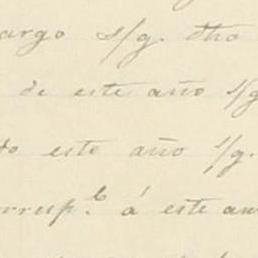 argo s/g. dho
de este año s/g
do este año s/g.
rresp.te á este añ